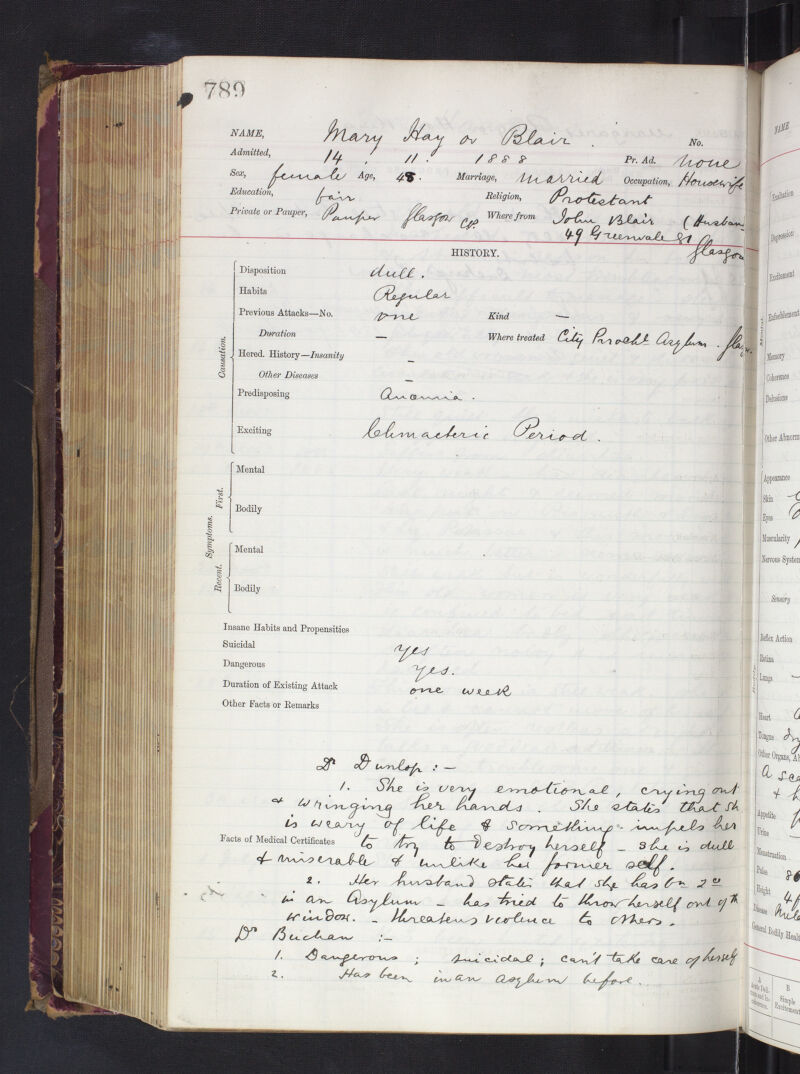 789
NAME, Mary Hay or Blair. No.
Admitted, 14. 11. 1888 Pr. Ad. None
Sex, female Age, 48. Marriage, Married Occupation, Housewife
Education, fair Religion, Protestant
Private or Pauper, Pauper Glasgow C.P. Where from John Blair (Husban
49 Greenvale St
Glasgow
HISTORY.
Causation.
Disposition dull.
Habits Regular
Previous Attacks—No. one Kind —
Duration — Where treated City Parochl Asylum.
Hered. History—Insanity —
Other Diseases —
Predisposing Anaemia.
Exciting Climacteric Period.
Symptoms.
First.
Mental
Bodily
Recent.
Mental
Bodily
Insane Habits and Propensities
Suicidal yes
Dangerous yes.
Duration of Existing Attack one week
Other Facts or Remarks
Dr Dunlop :—
1. She is very emotional, crying out
& wringing her hands. She states that sh
is weary of life & something impels her
Facts of Medical Certificates to try to destroy herself – she is dull
& miserable & unlike her former self.
2. Her husband states that she has bn 2ce
in an Asylum – has tried to throw herself out of th
window. – threatens violence to others.
Dr Buchan :–
1. Dangerous ; suicidal ; can't take care of herself
2. Has been in an asylum before.
NAME
Exaltation
Depression
Excitement
Enfeeblement
Mental
Memory
Coherence
Delusions
Other Abnorm
Appearance
Skin
Eyes
Muscularity
Nervous System
Sensory
Reflex Action
Retina
Lungs
Heart
Tongue
Other Organs, A
Appetite
Urine
Menstruation
Pulse
Height
Disease
General Bodily Healt
A
B
Simple
Excitement